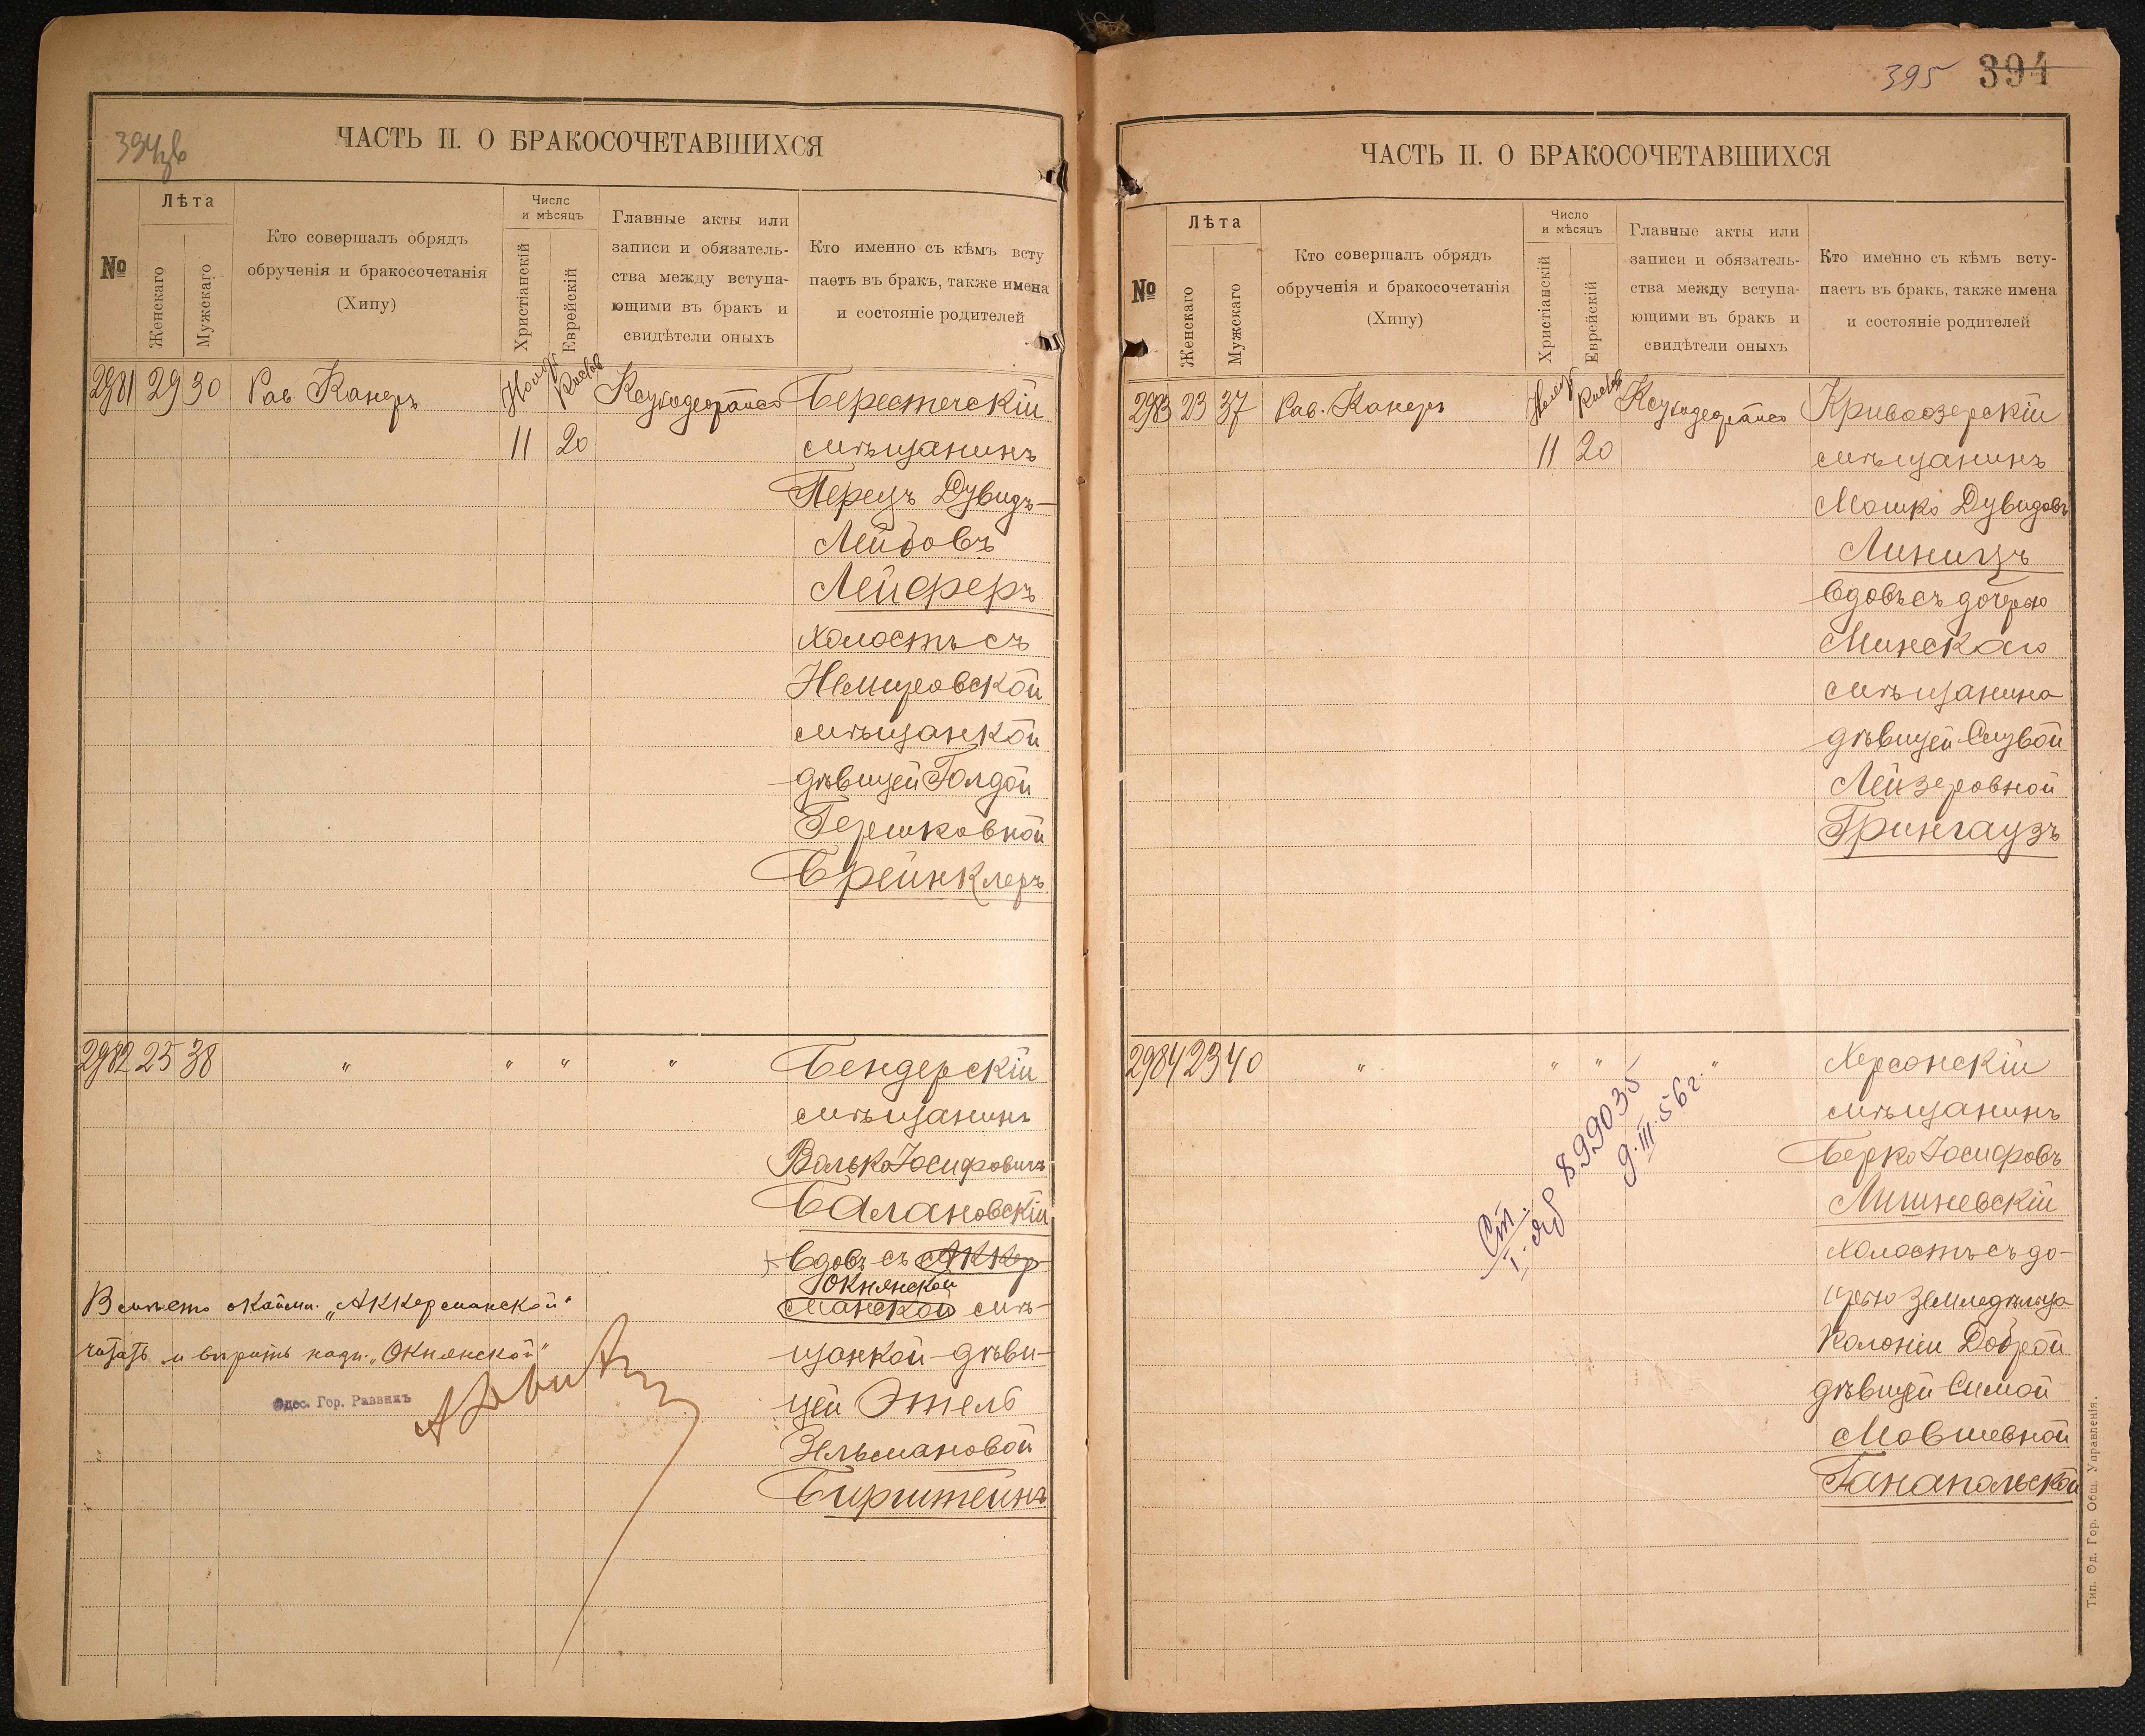 394зв
ЧАСТЬ II. О БРАКОСОЧЕТАВШИХСЯ
№
Лѣта
Женскаго
Мужскаго
Кто совершалъ обрядъ
обрученія и бракосочетанія
(Хипу)
Число
и мѣсяцъ
Христіанскій
Еврейскій
Главные акты или
записи и обязатель-
ства между вступа-
ющими въ бракъ и
свидѣтели оныхъ
Кто именно съ кѣмъ всту
паетъ въ бракъ, также имена
и состояніе родителей
2981 29 30 Рав. Канеръ Ноябр Кислев Берестечскій
11 20 мѣщанинъ
Перецъ Дувидъ-
Лейбовъ
Лейферъ
холостъ съ
Немировской
мѣщанкой
дѣвицей Голдой
Гершковной
Брейнклеръ
2982 25 38 " " " " Бендерскій
мѣщанинъ
Волько Іосифовичъ
Балановскій
Вдовъ съ Аккер
Окнянской
манской мѣ-
щанкой дѣви-
цей Этель
Зельмановой
Бирштейнъ
Вмѣсто окаймл. „Аккерманской"
читать и вѣрить надп. „Окнянской"
Одес. Гор. Раввинъ
395 394
ЧАСТЬ II. О БРАКОСОЧЕТАВШИХСЯ
№
Лѣта
Женскаго
Мужскаго
Кто совершалъ обрядъ
обрученія и бракосочетанія
(Хипу)
Число
и мѣсяцъ
Христіанскій
Еврейскій
Главные акты или
записи и обязатель-
ства между вступа-
ющими въ бракъ и
свидѣтели оныхъ
Кто именно съ кѣмъ всту-
паетъ въ бракъ, также имена
и состояніе родителей
2983 23 37 Рав. Канеръ Ноябр Кислев Кривоозерскій
11 20 мѣщанинъ
Мошко Дувидовъ
Линицъ
Вдовъ съ дочерью
Минскаго
мѣщанина
дѣвицей
Лейзеровной
Грингаузъ
2984 23 40 " " " " Херсонскій
мѣщанинъ
Берко Іосифовъ
Лишневскій
холостъ съ до-
черью земледѣльца
колоніи Доброй
дѣвицей Симой
Мовшевной
Ганапольской
899035
9.III.56 г.
Тип. Од. Гор. Общ. Управленія.